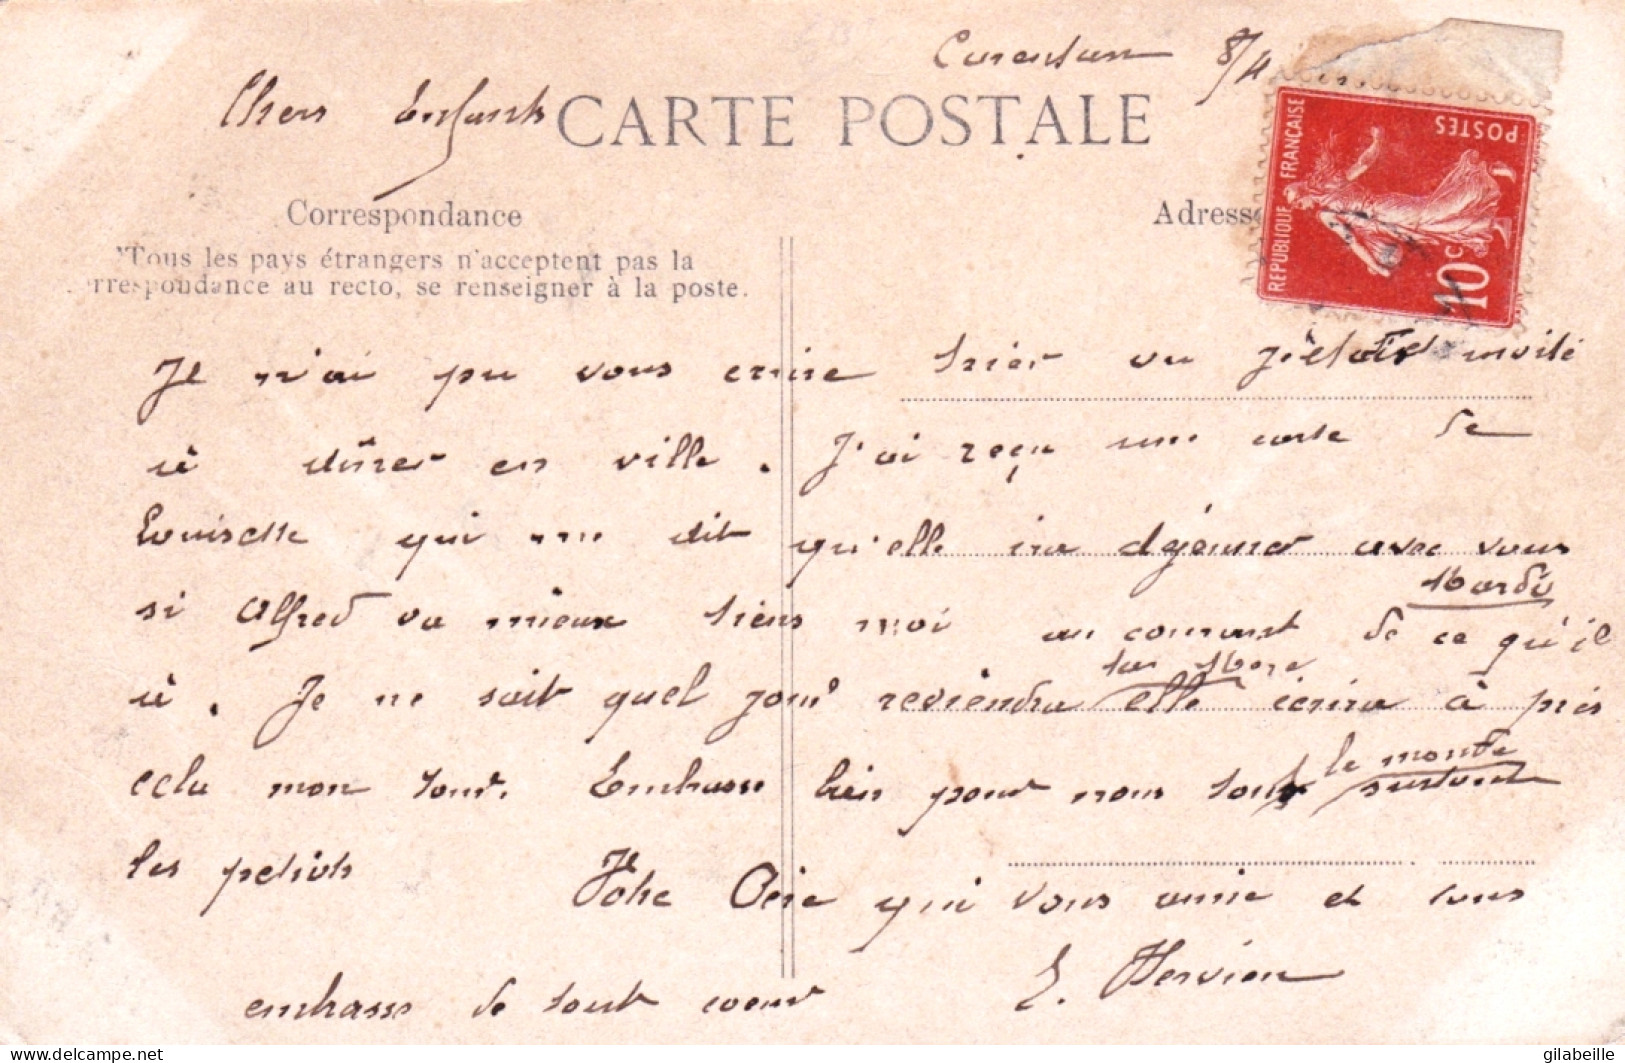 Carentan 8/4
Chers Enfants
CARTE POSTALE
Correspondance
Adresse
Tous les pays étrangers n'acceptent pas la
correspondance au recto, se renseigner à la poste.
REPUBLIQUE FRANÇAISE
POSTES
10 c
Je n'ai pu vous ecrire hier vu j'étais invité
à dîner en ville. J'ai reçu une carte de
Louisette qui me dit qu'elle ira déjeuner avec vous
Mardi
si Alfred va mieux tiens moi au courant de ce qu'il
ta Mere
à. Je ne sait quel jour reviendra elle écrira à près
cela mon tour. Embrasse bien pour nous tout le monde
surtout
les petiots Votre Père qui vous aime et vous
embrasse de tout coeur E. Hervieu
https://www.delcampe.net
gilabeille